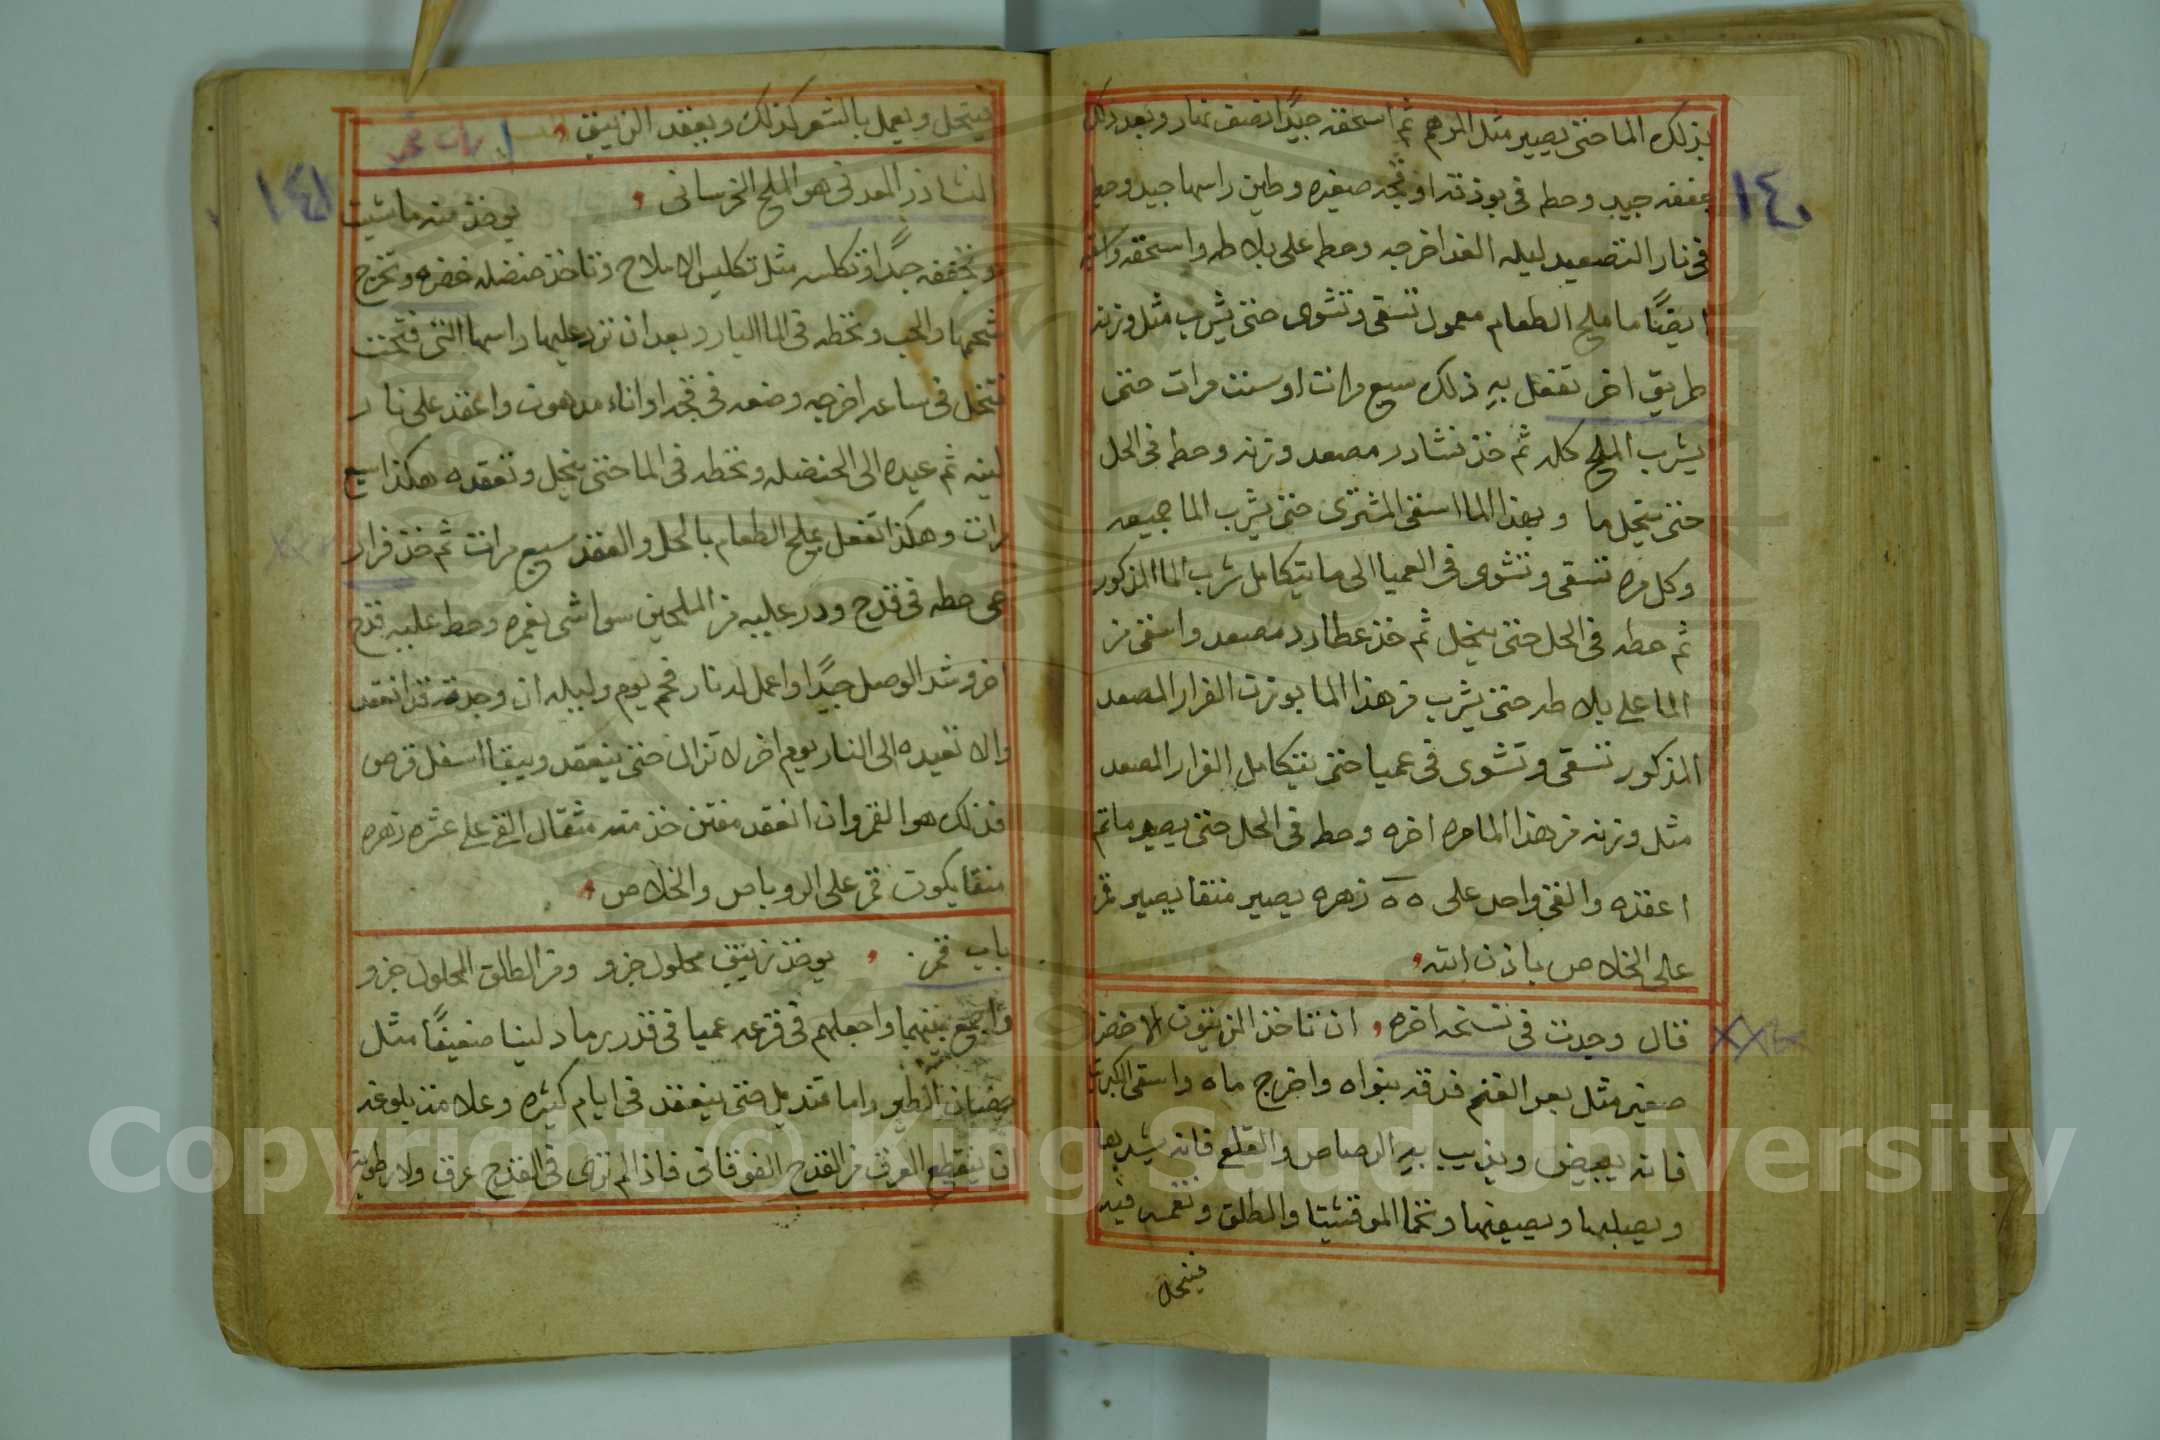 ١٤٠
بذلك الما حتى يصير مثل المرهم ثم اسحقه جيدًا نصف نهار وبعد ذلك
جففه جيد وحطه فى بوذقه او قجه صغيره وطين راسها جيد وحط
فى نار التصعيد ليله الغد اخرجه وحطه على بلاطه واسحقه واسقه
ايضًا ما ملح الطعام معمول تسقى وتشوى حتى يشرب مثل وزنه
طريق اخر تفعل به ذلك سبع مرات او ست مرات حتى
يشرب الملح كله ثم خذ نشادر مصعد وزنه وحطه فى الحل
حتى ينحل ما وبهذا الما اسقى المشترى حتى يشرب الما جميعه
وكل مره تسقى وتشوى فى العميا الى ما يتكامل شرب الما المذكور
ثم حطه فى الحل حتى ينحل ثم خذ عطارد مصعد واسقى من
الما على بلاطه حتى يشرب من هذا الما بوزن الفرار المصعد
المذكور تسقى وتشوى فى عميا حتى يتكامل الفرار المصعد
مثل وزنه من هذا الما مره اخره وحطه فى الحل حتى يصير ما ثم
اعقده والقى واحد على ٥٥ زهره يصير منقا يصير قمر
على الخلاص باذن الله
قال وجدت فى نسخه اخره ان تاخذ الزيتون الاخضر
صغير مثل بعر الغنم فدقه بنواه واخرج ماه واسقى الكبريت
فانه يبيض ويذيب به الرصاص والقلع فانه يشد بها
ويصلبها ويصبغها وتخما الموقشيتا والطلق وتغمسه فيه
فينحل
١٤١
فينحل ويعمل بالشعر كذلك ويعقد الزيبق
باب قمر
النشاذر المعدنى هو الملح الخرسانى يوخذ منه ما شيت
وتجففه جيدًا وتكلسه مثل تكليس الاملاح وتاخذ حنضله خضره وتخرج
شحمها والحب وتحطه فى الما البارد بعد ان ترد عليها راسها التى فتحت
فتحل فى ساعه اخرجه وضعه فى قجه او اناء مدهون واعقد على نار
لينه ثم عيده الى الحنضله وتحطه فى الما حتى ينحل وتعقده هكذا سبع
مرات وهكذا تفعل بملح الطعام بالحل والعقد سبع مرات ثم خذ فرار
حى حطه فى قدح ودر عليه من الملحين سوا شى يغمره وحط عليه قدح
اخر وشد الوصل جيدًا واعمل له نار فحم يوم وليله ان وجدته قد انعقد
والا تعيده الى النار يوم اخر لا تزال حتى ينعقد ويبقا اسفل قرص
فذلك هو القمر وان انعقد مفتت خذ منه مثقال القى على عشره زهره
منقا يكون قمر على الروباص والخلاص
باب قمر يوخذ زيبق محلول جزو ومن الطلق المحلول جزو
واجمع بينهما واجعلهم فى قرعه عميا فى قدر برماد لينا ضعيفًا مثل
حضان الطير واما قنديل حتى ينعقد فى ايام كثيره وعلامة بلوغه
ان ينقطع العرق من القدح الفوقانى فاذا لم ترى فى القدح عرق ولا رطوبة
Copyright © King Saud University